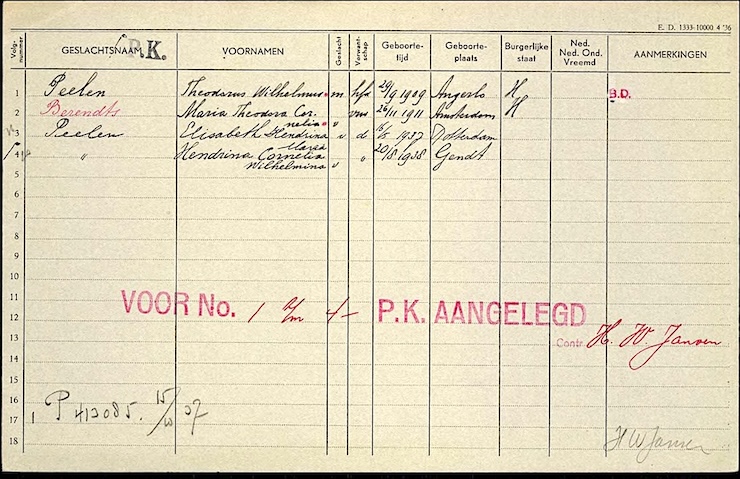 E. D. 1333-10000 4 '36
Volg-nummer GESLACHTSNAAM P.K. VOORNAMEN Geslacht Verwant-schap Geboorte-tijd Geboorte-plaats Burgerlijke staat Ned. Ned. Ond. Vreemd AANMERKINGEN
1 Peelen Theodorus Wilhelmus m hfd 29/9 1909 Angerlo H B.D.
2 Berendts Maria Theodora Cor- v vrw 26/11 1911 Amsterdam H
nelia
3 Peelen Elisabeth Hendrina v d 1937 Rotterdam
Maria
4 " Hendrina Cornelia v " 20/8 1938 Gendt
Wilhelmina
5
6
7
8
9
10
11 VOOR No. 1 t/m 4 - P.K. AANGELEGD
12
13 Contr. H. W. Jansen
14
15
16 1 P 413085. 15/10 37
17
18 H W Jansen